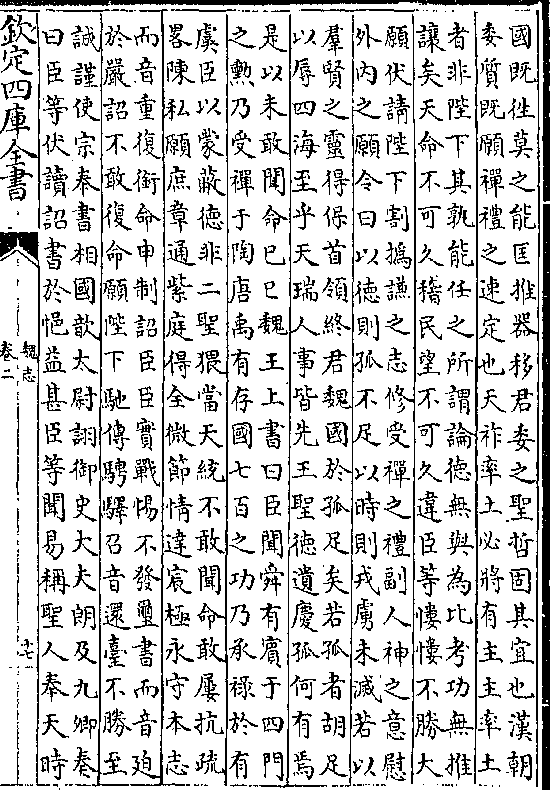 國既徃莫之能匡推器移君委之聖哲固其宜也漢朝
委質既願禪禮之速定也天祚率土必將有主主率土
者非陛下其孰能任之所謂論德無與為比考功無推
讓矣天命不可久稽民望不可久違臣等慺慺不勝大
願伏請陛下割撝謙之志修受禪之禮副人神之意慰
外內之願令曰以德則孤不足以時則戎虜未滅若以
羣賢之靈得保首領終君魏國於孤足矣若孤者胡足
以辱四海至乎天瑞人事皆先王聖德遺慶孤何有焉
是以未敢聞命巳巳魏王上書曰臣聞舜有賓于四門
之勲乃受禪于陶唐禹有存國七百之功乃承祿於有
虞臣以蒙蔽德非二聖猥當天統不敢聞命敢屢抗疏
畧陳私願庶章通紫庭得全微節情違宸極永守本志
而音重復銜命申制詔臣臣實戰惕不發璽書而音廹
於嚴詔不敢復命願陛下馳傳騁驛召音還臺不勝至
誠謹使宗奉書相國歆太尉詡御史大夫朗及九卿奏
曰臣等伏讀詔書於悒益甚臣等聞易稱聖人奉天時
欽定四庫全書
魏志
卷二
十七